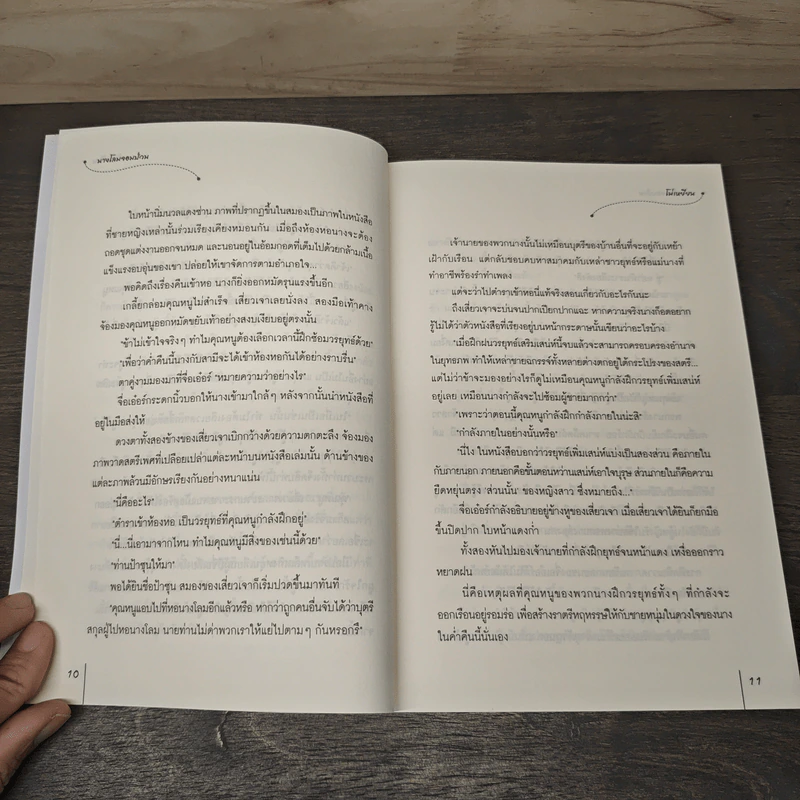 นางโลมจอมป่วน
ใบหน้านิ่มนวลแดงซ่าน ภาพที่ปรากฏขึ้นในสมองเป็นภาพในหนังสือ
ที่ชายหญิงเหล่านั้นร่วมเรียงเคียงหมอนกัน เมื่อถึงห้องหอนางจะต้อง
ถอดชุดแต่งงานออกจนหมด และนอนอยู่ในอ้อมกอดที่เต็มไปด้วยกล้ามเนื้อ
แข็งแรงอบอุ่นของเขา ปล่อยให้เขาจัดการตามอำเภอใจ...
พอคิดถึงเรื่องคืนเข้าหอ นางก็ยิ่งออกหมัดรุนแรงขึ้นอีก
เกลี้ยกล่อมคุณหนูไม่สำเร็จ เสี่ยวเจาเลยนั่งลง สองมือเท้าคาง
จ้องมองคุณหนูออกหมัดขยับเท้าอย่างสงบเงียบอยู่ตรงนั้น
"ข้าไม่เข้าใจจริงๆ ทำไมคุณหนูต้องเลือกเวลานี้ฝึกซ้อมวรยุทธ์ด้วย"
"เพื่อว่าค่ำคืนนี้นางกับสามีจะได้เข้าห้องหอกันได้อย่างราบรื่น"
ตาคู่งามมองมาที่จื่อเอ๋อร์ "หมายความว่าอย่างไร"
จื่อเอ๋อร์กระดกนิ้วบอกให้นางเข้ามาใกล้ๆ หลังจากนั้นนำหนังสือที่
อยู่ในมือส่งให้
ดวงตาทั้งสองข้างของเสี่ยวเจาเบิกกว้างด้วยความตกตะลึง จ้องมอง
ภาพวาดสตรีเพศที่เปลือยเปล่าแต่ละหน้าบนหนังสือเล่มนั้น ด้านข้างของ
แต่ละภาพล้วนมีอักษรเรียงกันอย่างหนาแน่น
"นี่คืออะไร"
"ตำราเข้าห้องหอ เป็นวรยุทธ์ที่คุณหนูกำลังฝึกอยู่"
"นี่...นี่เอามาจากไหน ทำไมคุณหนูมีสิ่งของเช่นนี้ด้วย"
"ท่านป้าชุนให้มา"
พอได้ยินชื่อป้าชุน สมองของเสี่ยวเจาก็เริ่มปวดขึ้นมาทันที
"คุณหนูแอบไปที่หอนางโลมอีกแล้วหรือ หากว่าถูกคนอื่นจับได้ว่าบุตรี
สกุลผู้ไปหอนางโลม นายท่านไม่ด่าพวกเราให้แย่ไปตามๆ กันหรอกรึ"
10
โม่เหยียน
เจ้านายของพวกนางนั้นไม่เหมือนบุตรีของบ้านอื่นที่จะอยู่กับเหย้า
เฝ้ากับเรือน แต่กลับชอบคบหาสมาคมกับเหล่าชาวยุทธ์หรือแม่นางที่
ทำอาชีพร้องรำทำเพลง
แต่จะว่าไปตำราเข้าหอนี่แท้จริงสอนเกี่ยวกับอะไรกันนะ
ถึงเสี่ยวเจาจะบ่นจนปากเปียกปากแฉะ หากความจริงนางก็อดอยาก
รู้ไม่ได้ว่าตัวหนังสือที่เรียงอยู่บนหน้ากระดาษนั้นเขียนว่าอะไรบ้าง
"เมื่อฝึกฝนวรยุทธ์เสริมเสน่ห์นี้จบแล้วจะสามารถครอบครองอำนาจ
ในยุทธภพ ทำให้เหล่าชายฉกรรจ์ทั้งหลายต่างตกอยู่ใต้กระโปรงของสตรี...
แต่ไม่ว่าข้าจะมองอย่างไรก็ดูไม่เหมือนคุณหนูกำลังฝึกวรยุทธ์เพิ่มเสน่ห์
อยู่เลย เหมือนนางกำลังจะไปซ้อมผู้ชายมากกว่า"
"เพราะว่าตอนนี้คุณหนูกำลังฝึกกำลังภายในน่ะสิ"
"กำลังภายในอย่างนั้นหรือ"
"นี่ไง ในหนังสือบอกว่าวรยุทธ์เพิ่มเสน่ห์แบ่งเป็นสองส่วน คือภายใน
กับภายนอก ภายนอกคือขั้นตอนหว่านเสน่ห์เอาใจบุรุษ ส่วนภายในก็คือความ
ยืดหยุ่นตรง 'ส่วนนั้น' ของหญิงสาว ซึ่งหมายถึง..."
จื่อเอ๋อร์กำลังอธิบายอยู่ข้างหูของเสี่ยวเจา เมื่อเสี่ยวเจาได้ยินก็ยกมือ
ขึ้นปิดปาก ใบหน้าแดงก่ำ
ทั้งสองหันไปมองเจ้านายที่กำลังฝึกยุทธ์จนหน้าแดง เหงื่อออกราว
หยาดฝน
นี่คือเหตุผลที่คุณหนูของพวกนางฝึกวรยุทธ์ทั้งๆ ที่กำลังจะ
ออกเรือนอยู่รอมร่อ เพื่อสร้างราตรีหฤหรรษ์ให้กับชายหนุ่มในดวงใจของนาง
ในค่ำคืนนี้นั่นเอง
11